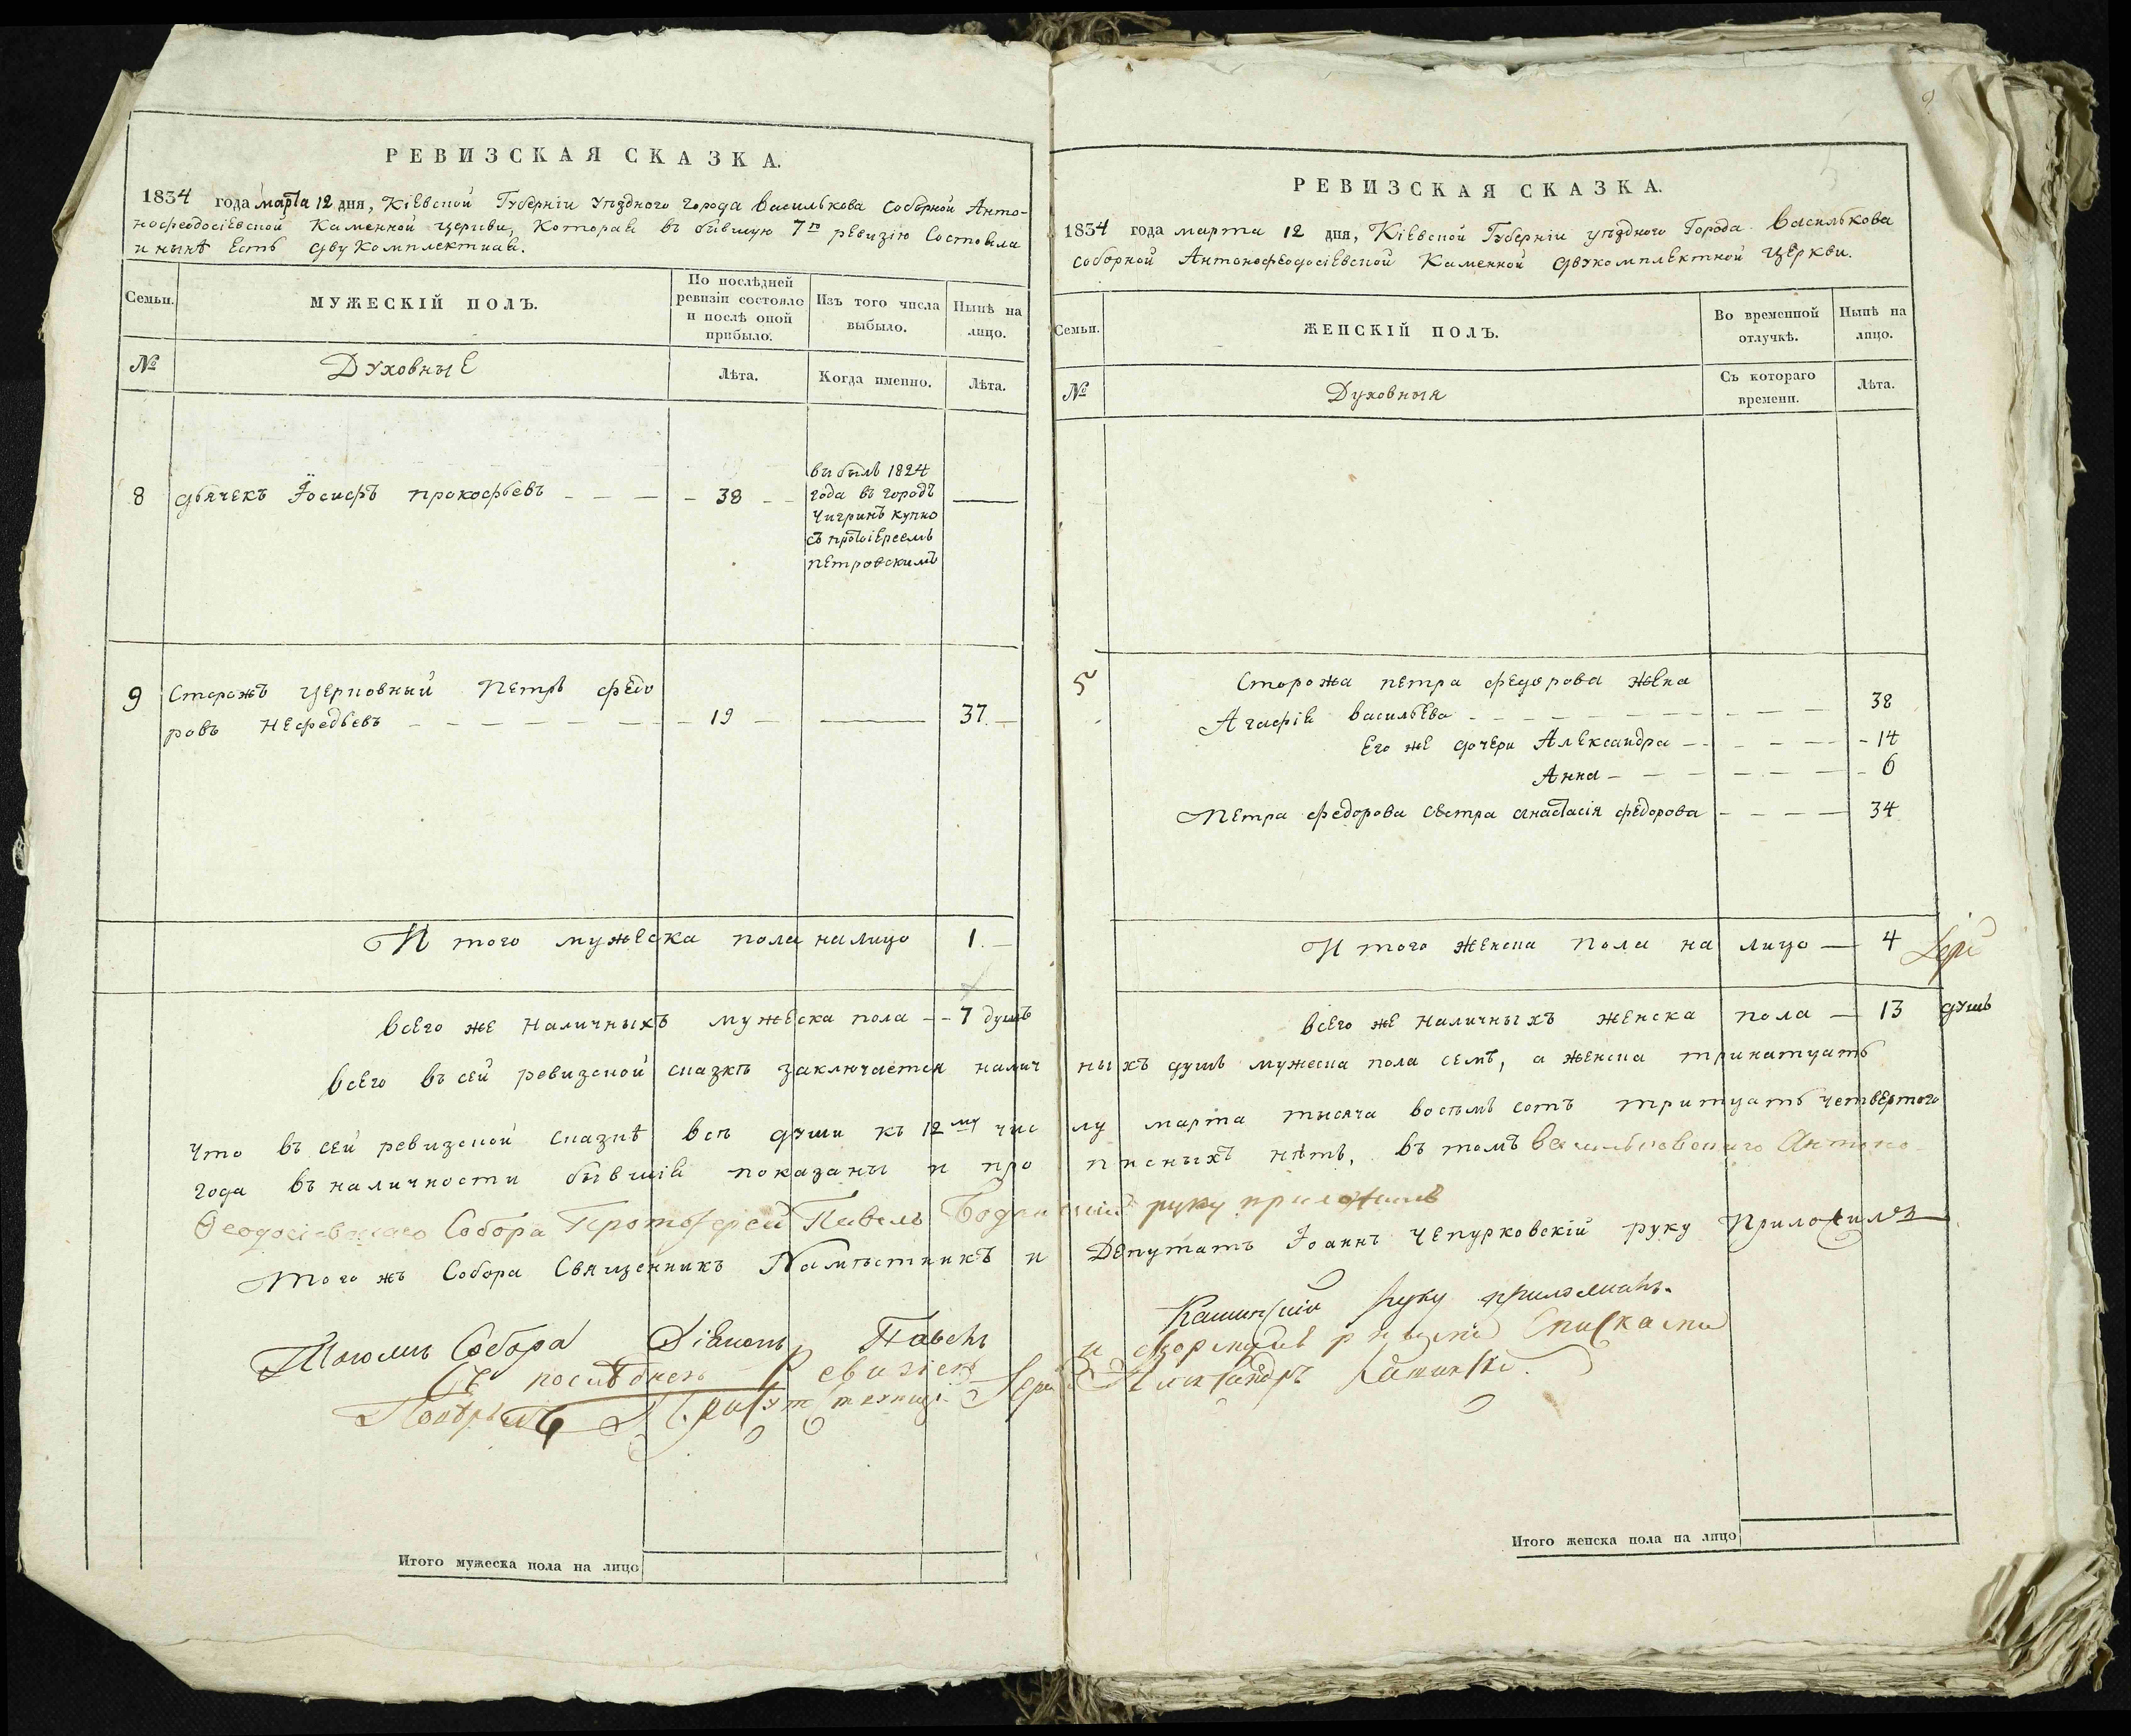 РЕВИЗСКАЯ СКАЗКА.
1834 года марта 12 дня, Кіевской Губерніи уѣзднаго города Василькова Соборной Анто-
нофеодосіевской Каменной церкви, Которая въ бывшую 7ю ревизію Состояла
и нынѣ Есть двукомплектная.
Семьи.
МУЖЕСКІЙ ПОЛЪ.
По послѣдней ревизіи состояло и послѣ оной прибыло.
Изъ того числа выбыло.
Нынѣ на лицо.
№
Духовные
Лѣта.
Когда именно.
Лѣта.
8 дьячекъ Іосифъ прокофьевъ — — — 38 — —
выбылъ 1824
года въ городъ
Чигринъ купно
съ протоіереемъ
петровскимъ
9 Сторожъ церковный Петръ федо
ровъ Нефедьевъ — — — 19 — — 37. —
Итого мужеска пола налицо 1. —
всего же наличныхъ мужеска пола — — 7 душъ
РЕВИЗСКАЯ СКАЗКА.
1834 года марта 12 дня, Кіевской Губерніи уѣзднаго Города Василькова
соборной Антонофеодосіевской Каменной двукомплектной церкви.
Семьи.
ЖЕНСКІЙ ПОЛЪ.
Во временной отлучкѣ.
Нынѣ на лицо.
№
Духовныя
Съ котораго времени.
Лѣта.
Сторожа петра федорова жена
Агафія васильева — — — 38
Его же дочери Александра — — — 14
Анна — — — 6
Петра федорова сестра анастасія федорова — — — 34
Итого женска пола на лицо — 4
всего же наличныхъ женска пола — 13 душъ
всего въ сей ревизской сказкѣ заключается наличныхъ душъ мужеска пола семь, а женска тринатцать
Что въ сей ревизской сказкѣ всѣ души къ 12му числу марта тысяча восемь сотъ тритцать четвертого
года въ наличности бывшія показаны и прописныхъ нѣтъ, въ томъ васильковскаго Антоно
Ѳеодосіевскаго Собора Протоіерей Павелъ руку приложилъ
Того жъ Собора Священникъ Намѣстникъ и Депутатъ Іоаннъ Чепурковскій руку Приложилъ
Тогожъ Собора Діаконъ Павелъ Каминскій руку приложилъ.
Съ послѣднею Ревизіею
Итого мужеска пола на лицо
Итого женска пола на лицо